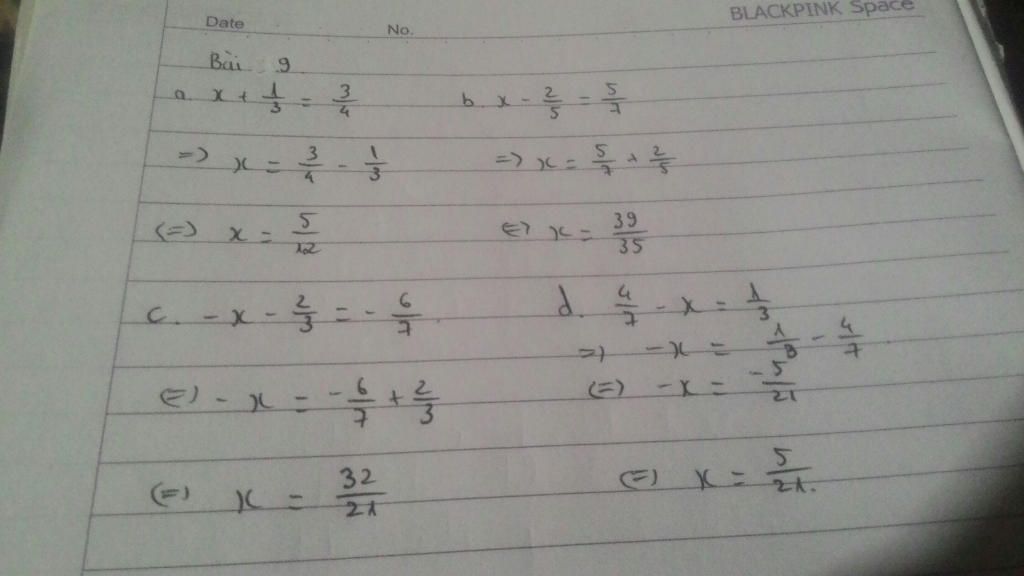 BLACKPINK Space
Date No.
Bài 9
a. x + 1/3 = 3/4
=> x = 3/4 - 1/3
(=) x = 5/12
b. x - 2/5 = 5/7
=> x = 5/7 + 2/5
(=) x = 39/35
c. -x - 2/3 = - 6/7.
(=) - x = -6/7 + 2/3
(=) x = 32/21
d. 4/7 - x = 1/3
=) -x = 1/3 - 4/7
(=) -x = -5/21
(=) x = 5/21.